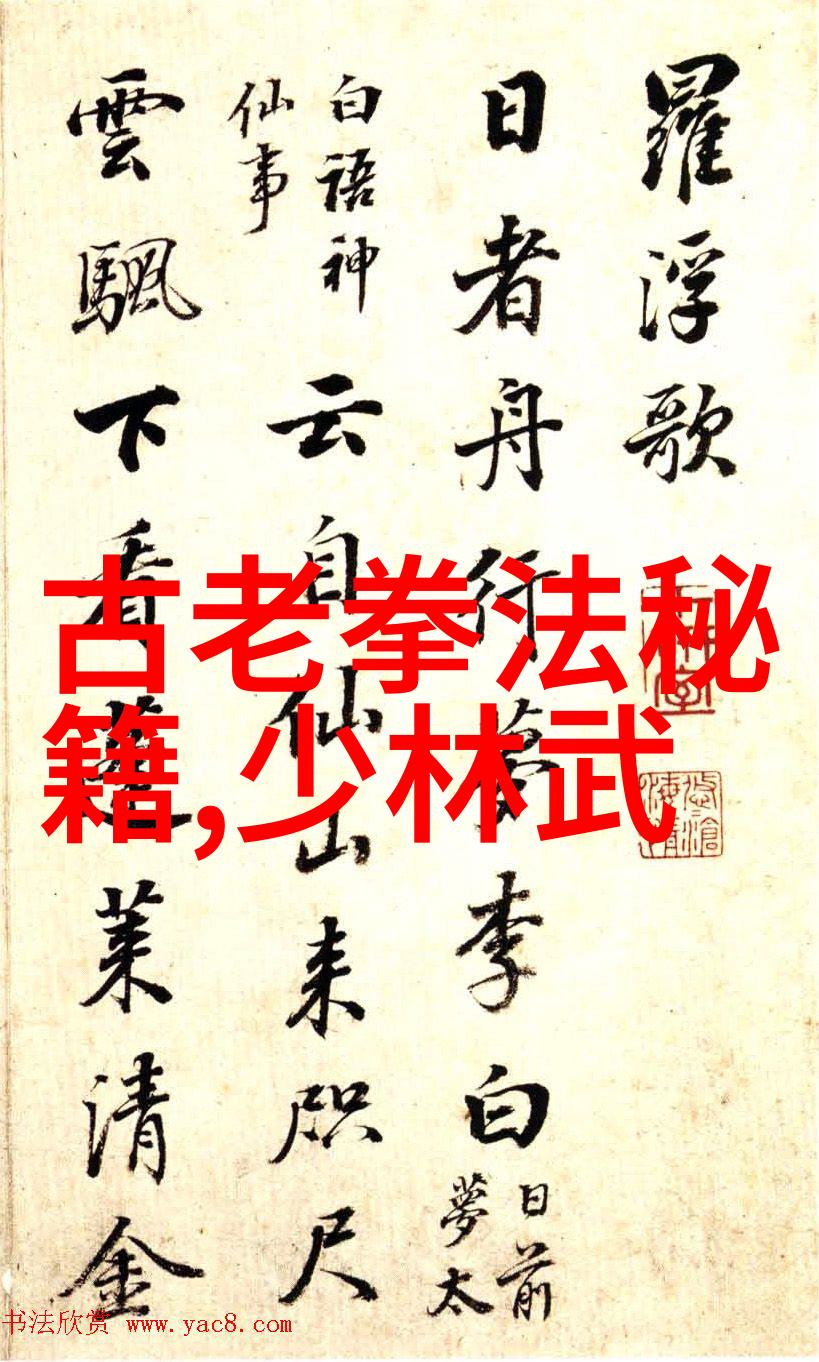 羅浮歌
日者舟行夢李白
日前
夢太
白語神
仙事
云自仙山来咫尺
雲颿下看蓬萊清金
古老拳法秘
籍,少林武
书法欣赏 www.yac8.com